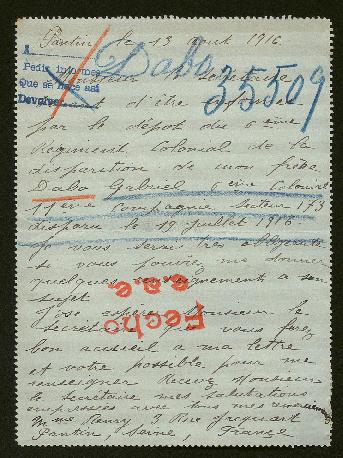 Pantin le 13 aout 1916.
A
Pedir informes
Que se hace así
Devolver
Dabo
35509
Monsieur le Secretaire
d'être informée
par le dépot du 6 ème
Regiment Colonial de la
disparition de mon frère
Dabo Gabriel 6 ème Colonial
compagnie Secteur 173
disparu le 19 juillet 1916
je vous serais très obligeante
si vous pouviez me donner
quelques renseignements a son
sujet
J'ose espérer Monsieur le
secrétaire que vous ferez
bon accueil a ma lettre
et votre possible pour me
renseigner Recevez Monsieur
le secrétaire mes salutations
empressées avec tous mes remerciements
Mme Henry 3 Rue Jacquart
Pantin, Seine, France
Fecho